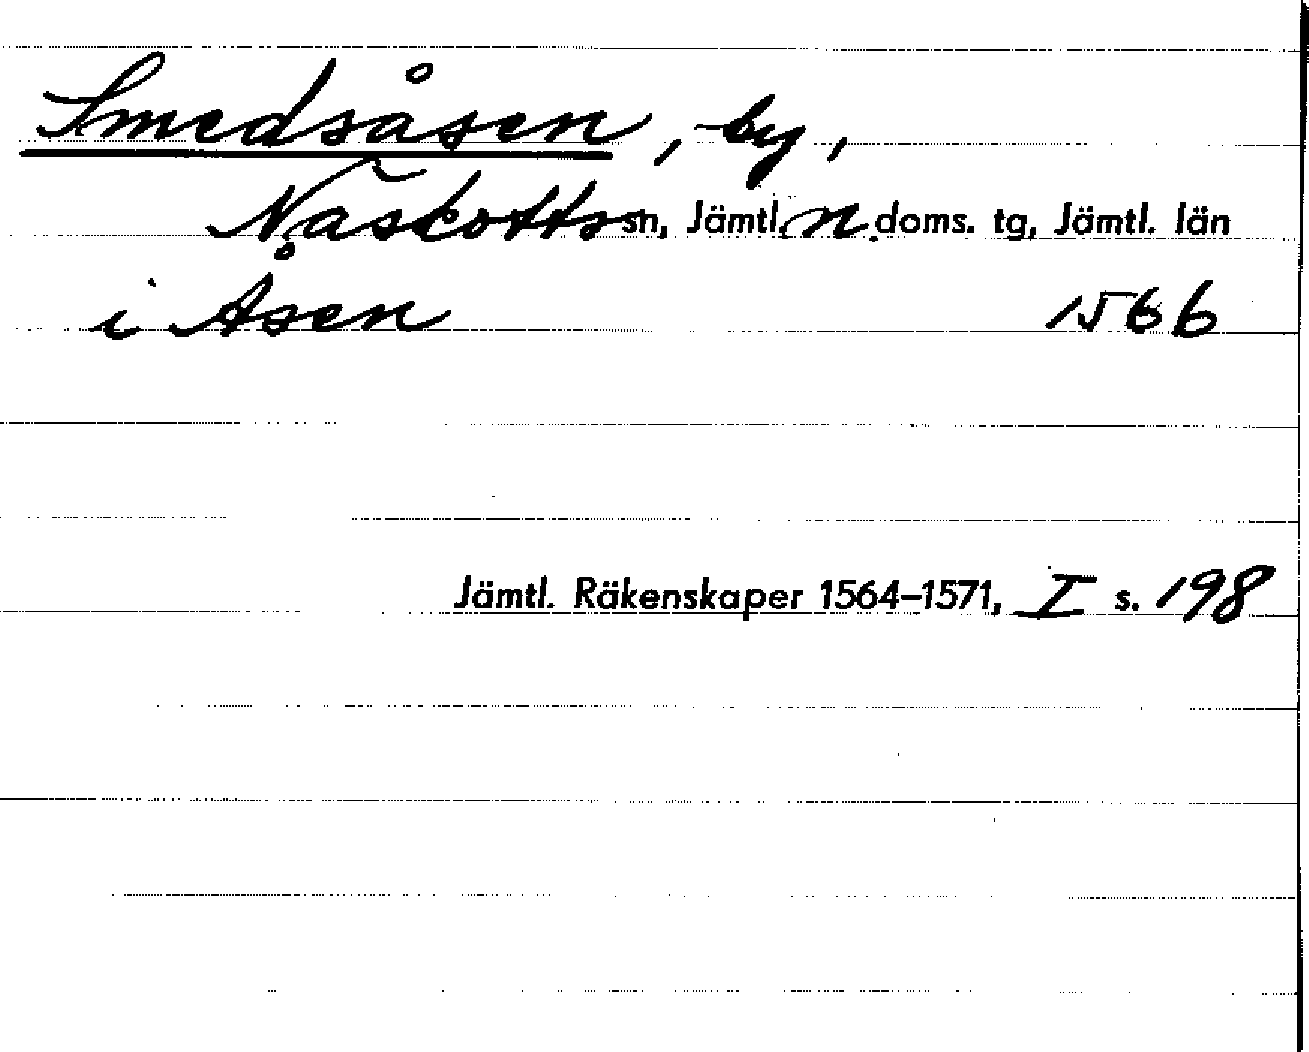 Smedsåsen, by,
Näskotts sn, Jämtl. n. doms. tg, Jämtl. län
i Åsen 1566
Jämtl. Räkenskaper 1564–1571, I s. 198